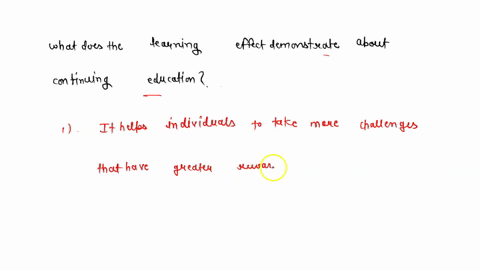 what does the learning effect demonstrate about
continuing education?
1). It helps individuals to take more challenges
that have greater rewar